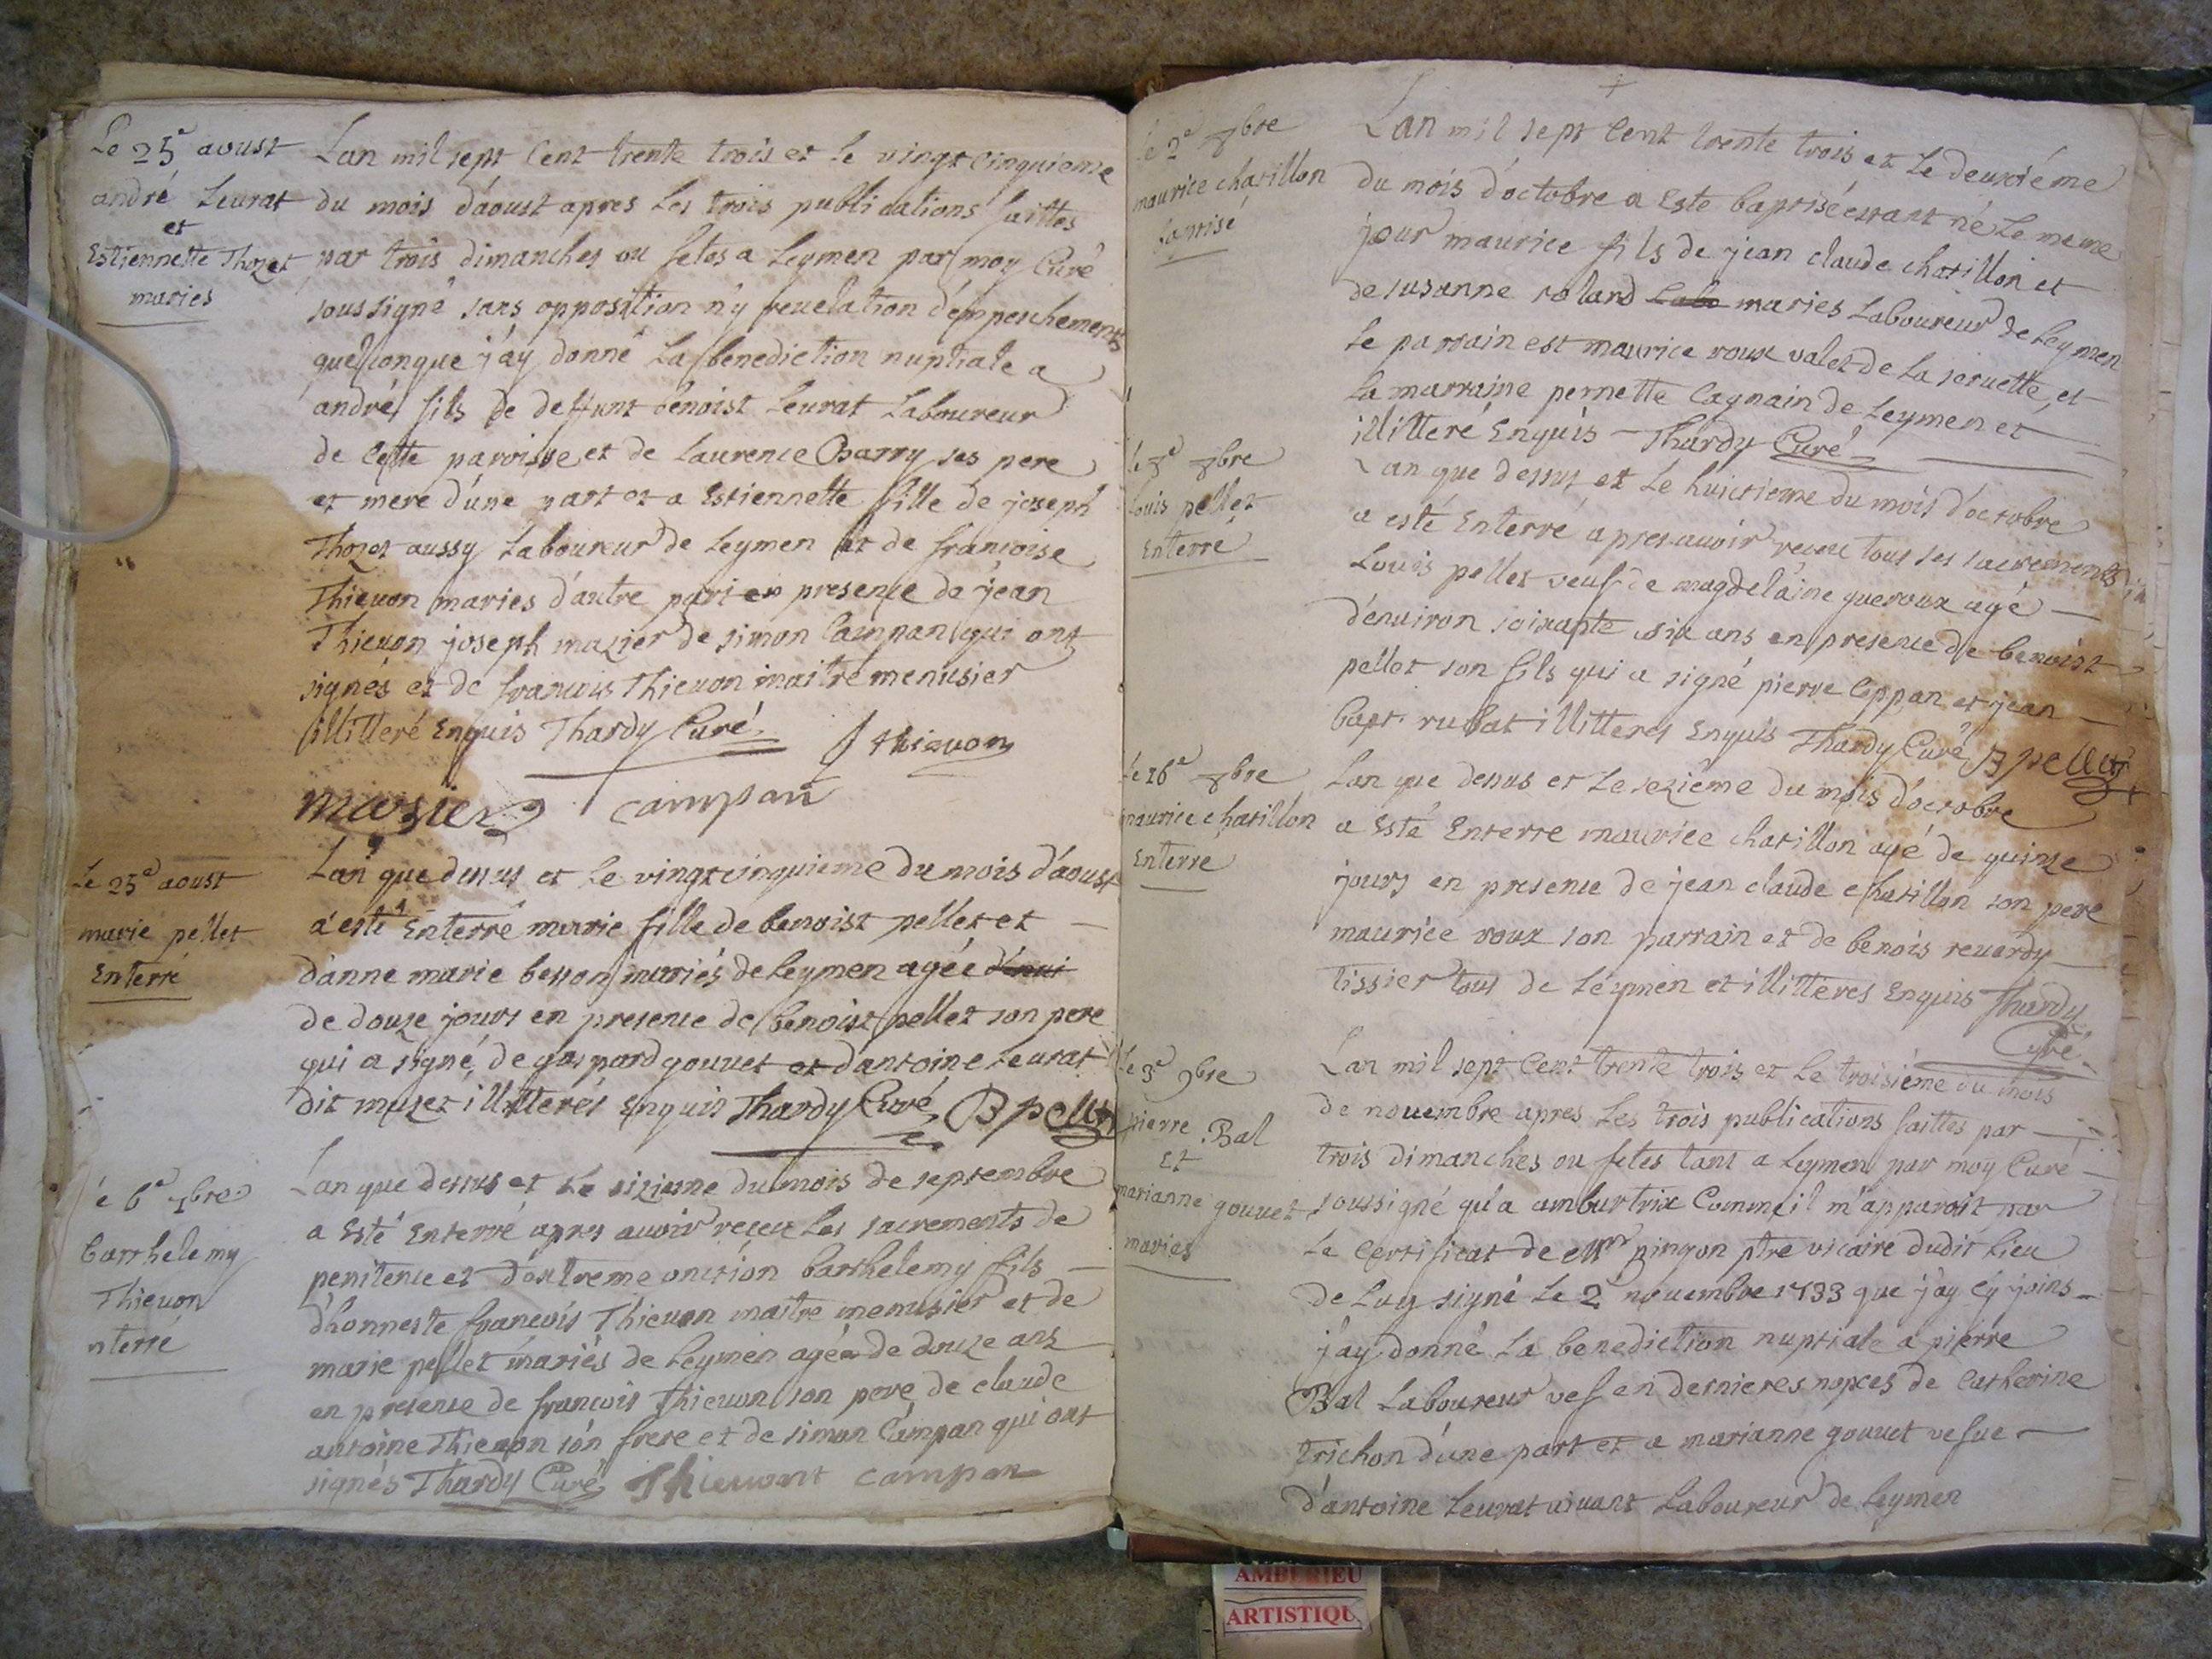 Le 25e aoust
andré Leurat
et
Estiennette Thozet
maries
Lan mil sept Cent trente trois et le vingt cinquieme
du mois d'aoust apres les trois publications faittes
par trois dimanches ou fetes a Leymen par moy Curé
soussigné sans opposition n'y reuelation d'empeschements
quelconque j'ay donné La benediction nuptiale a
andré fils de deffunt benoist Leurat Laboureur
de Cette paroisse et de Laurence Charry ses pere
et mere d'une part et a Estiennette fille de joseph
Thozet aussy Laboureur de Leymen et de francoise
Thieuon maries d'autre part en presence de jean
Thieuon joseph mazier de simon Campan qui ont
signés et de francois Thieuon maitre menusier
illitteré Enquis Thardy Curé J thieuon
mazier campan
Le 25e aoust
marie pellet
Enterré
Lan que dessus et le vingt cinquieme du mois d'aoust
a esté Enterré marie fille de benoist pellet et
d'anne marie besson mariés de Leymen agée d'enui
de douze jours en presence de benoist pellet son pere
qui a signé, de gaspard gouuet et d'antoine Leurat
dit muzet illitterés Enquis Thardy Curé B pellet
Le 6e 7bre
barthelemy
Thieuon
nterré
Lan que dessus et le sizieme du mois de septembre
a Esté Enterré apres auoir receu les sacrements de
penitence et d'extreme onction barthelemy fils
d'honneste francois Thieuon maitre menusier et de
marie pellet mariés de Leymen agée de douze ans
en presence de francois Thieuon son pere de claude
antoine Thieuon son frere et de simon Campan qui ont
signés Thardy Curé Thieuont campan
Le 2e 8bre
maurice chatillon
baptisé
Lan mil sept Cent trente trois et Le deuxiéme
du mois d'octobre a Esté baptisé estant né Le meme
jour maurice fils de jean claude chatillon et
de susanne roland Labo maries Laboureur de Leymen
Le parrain est maurice roux valet de La seruette, et
La marraine pernette Cagnain de Leymen et
illitteré Enquis Thardy Curé
le 8e 8bre
Louis pellet
Enterré
Lan que dessus et Le huictieme du mois d'octobre
a esté Enterré apres auoir receu tous ses sacrements
Louis pellet veuf de magdelaine queroux agé
d'enuiron soixante six ans en presence de benoist
pellet son fils qui a signé pierre Coppan et jean
bapt. rubat illitterés Enquis Thardy Curé B pellet
Le 16e 8bre
maurice chatillon
Enterre
Lan que dessus et Le sezieme du mois d'octobre
a Esté Enterre maurice chatillon agé de quinze
jours en presence de jean claude chatillon son pere
maurice roux son parrain et de benois reuerdy
tissier tous de Leymen et illitteres Enquis Thardy
Curé
Le 3e 9bre
pierre Bal
Et
marianne gouuet
maries
Lan mil sept Cent trente trois et Le troisiéme du mois
de nouembre apres Les trois publications faittes par
trois dimanches ou fetes tant a Leymen par moy Curé
soussigné qu'a amburtrix Comme il m'apparoit par
Le Certificat de Mre pingon ptre vicaire dudit Lieu
de Luy signé Le 2e nouembre 1733 que j'ay Cy joins
j'ay donné La benediction nuptiale a pierre
Bal Laboureur vef en dernieres nopces de Catherine
trichon d'une part et a marianne gouuet vefue
d'antoine Leurat viuant Laboureur de Leymen
AMBERIEU
ARTISTIQU